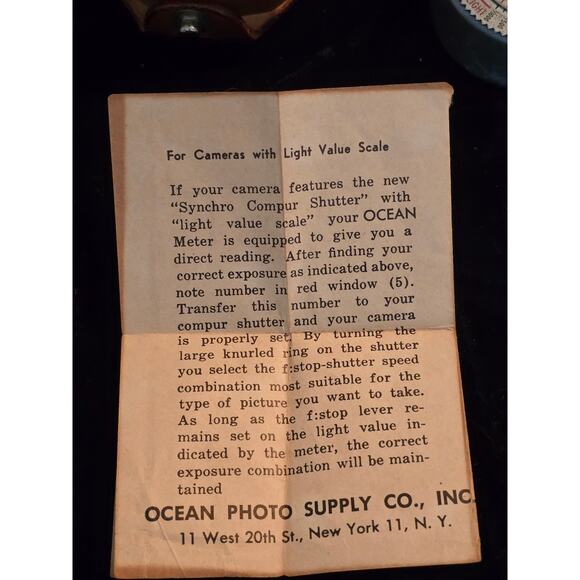 For Cameras with Light Value Scale
If your camera features the new
“Synchro Compur Shutter” with
“light value scale” your OCEAN
Meter is equipped to give you a
direct reading. After finding your
correct exposure as indicated above,
note number in red window (5).
Transfer this number to your
compur shutter and your camera
is properly set. By turning the
large knurled ring on the shutter
you select the f:stop-shutter speed
combination most suitable for the
type of picture you want to take.
As long as the f:stop lever re-
mains set on the light value in-
dicated by the meter, the correct
exposure combination will be main-
tained
OCEAN PHOTO SUPPLY CO., INC.
11 West 20th St., New York 11, N. Y.